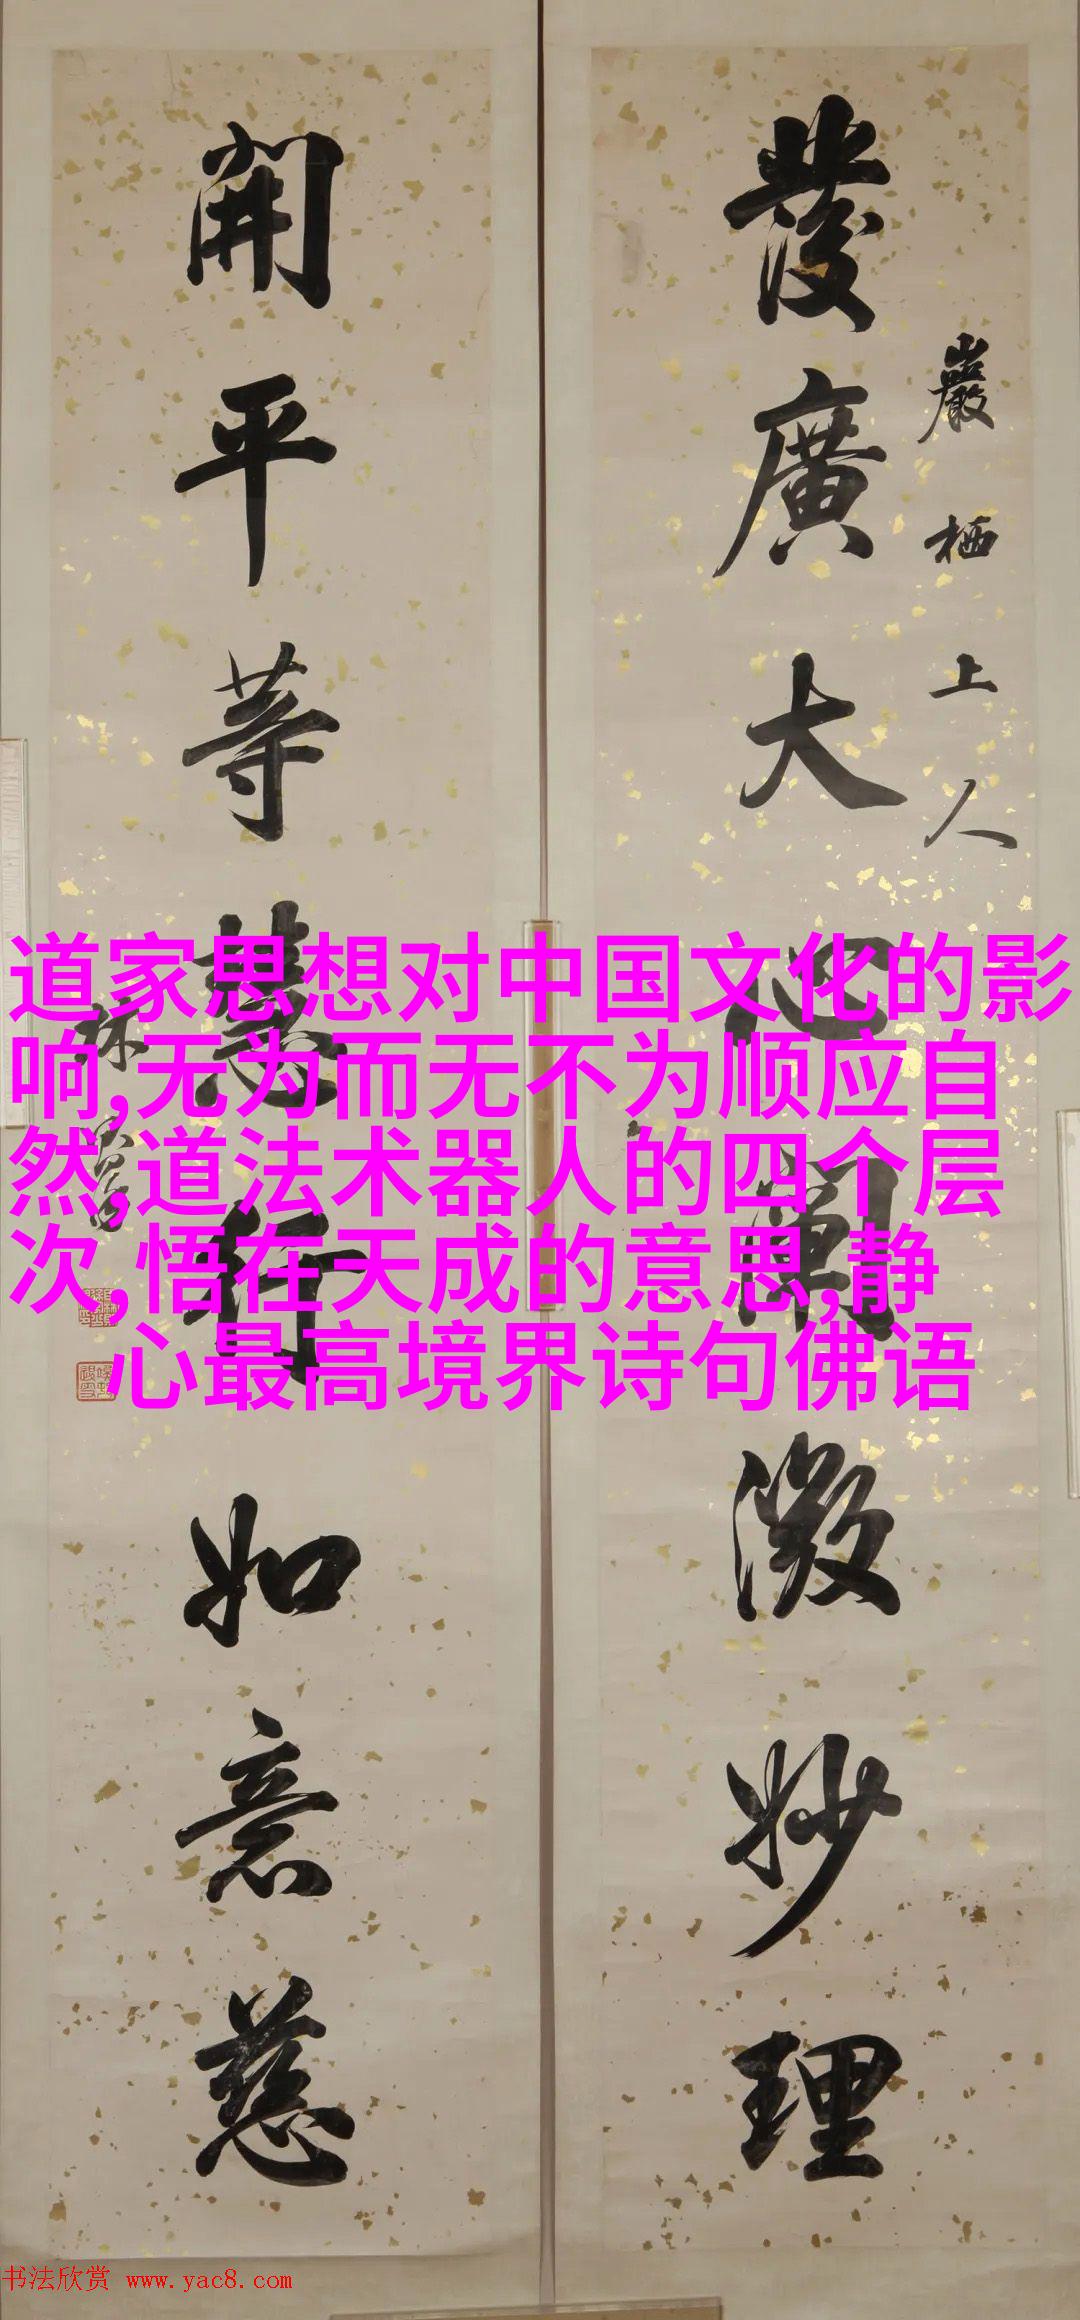 發廣大心闡微妙理
巖栖上人
開平等慧行如意慈
道家思想对中国文化的影
响,无为而无不为顺应自
然,道法术器人的四个层
次,悟在天成的意思,静
心最高境界诗句佛语
书法欣赏 www.yac8.com